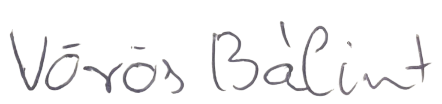 Vörös Bálint